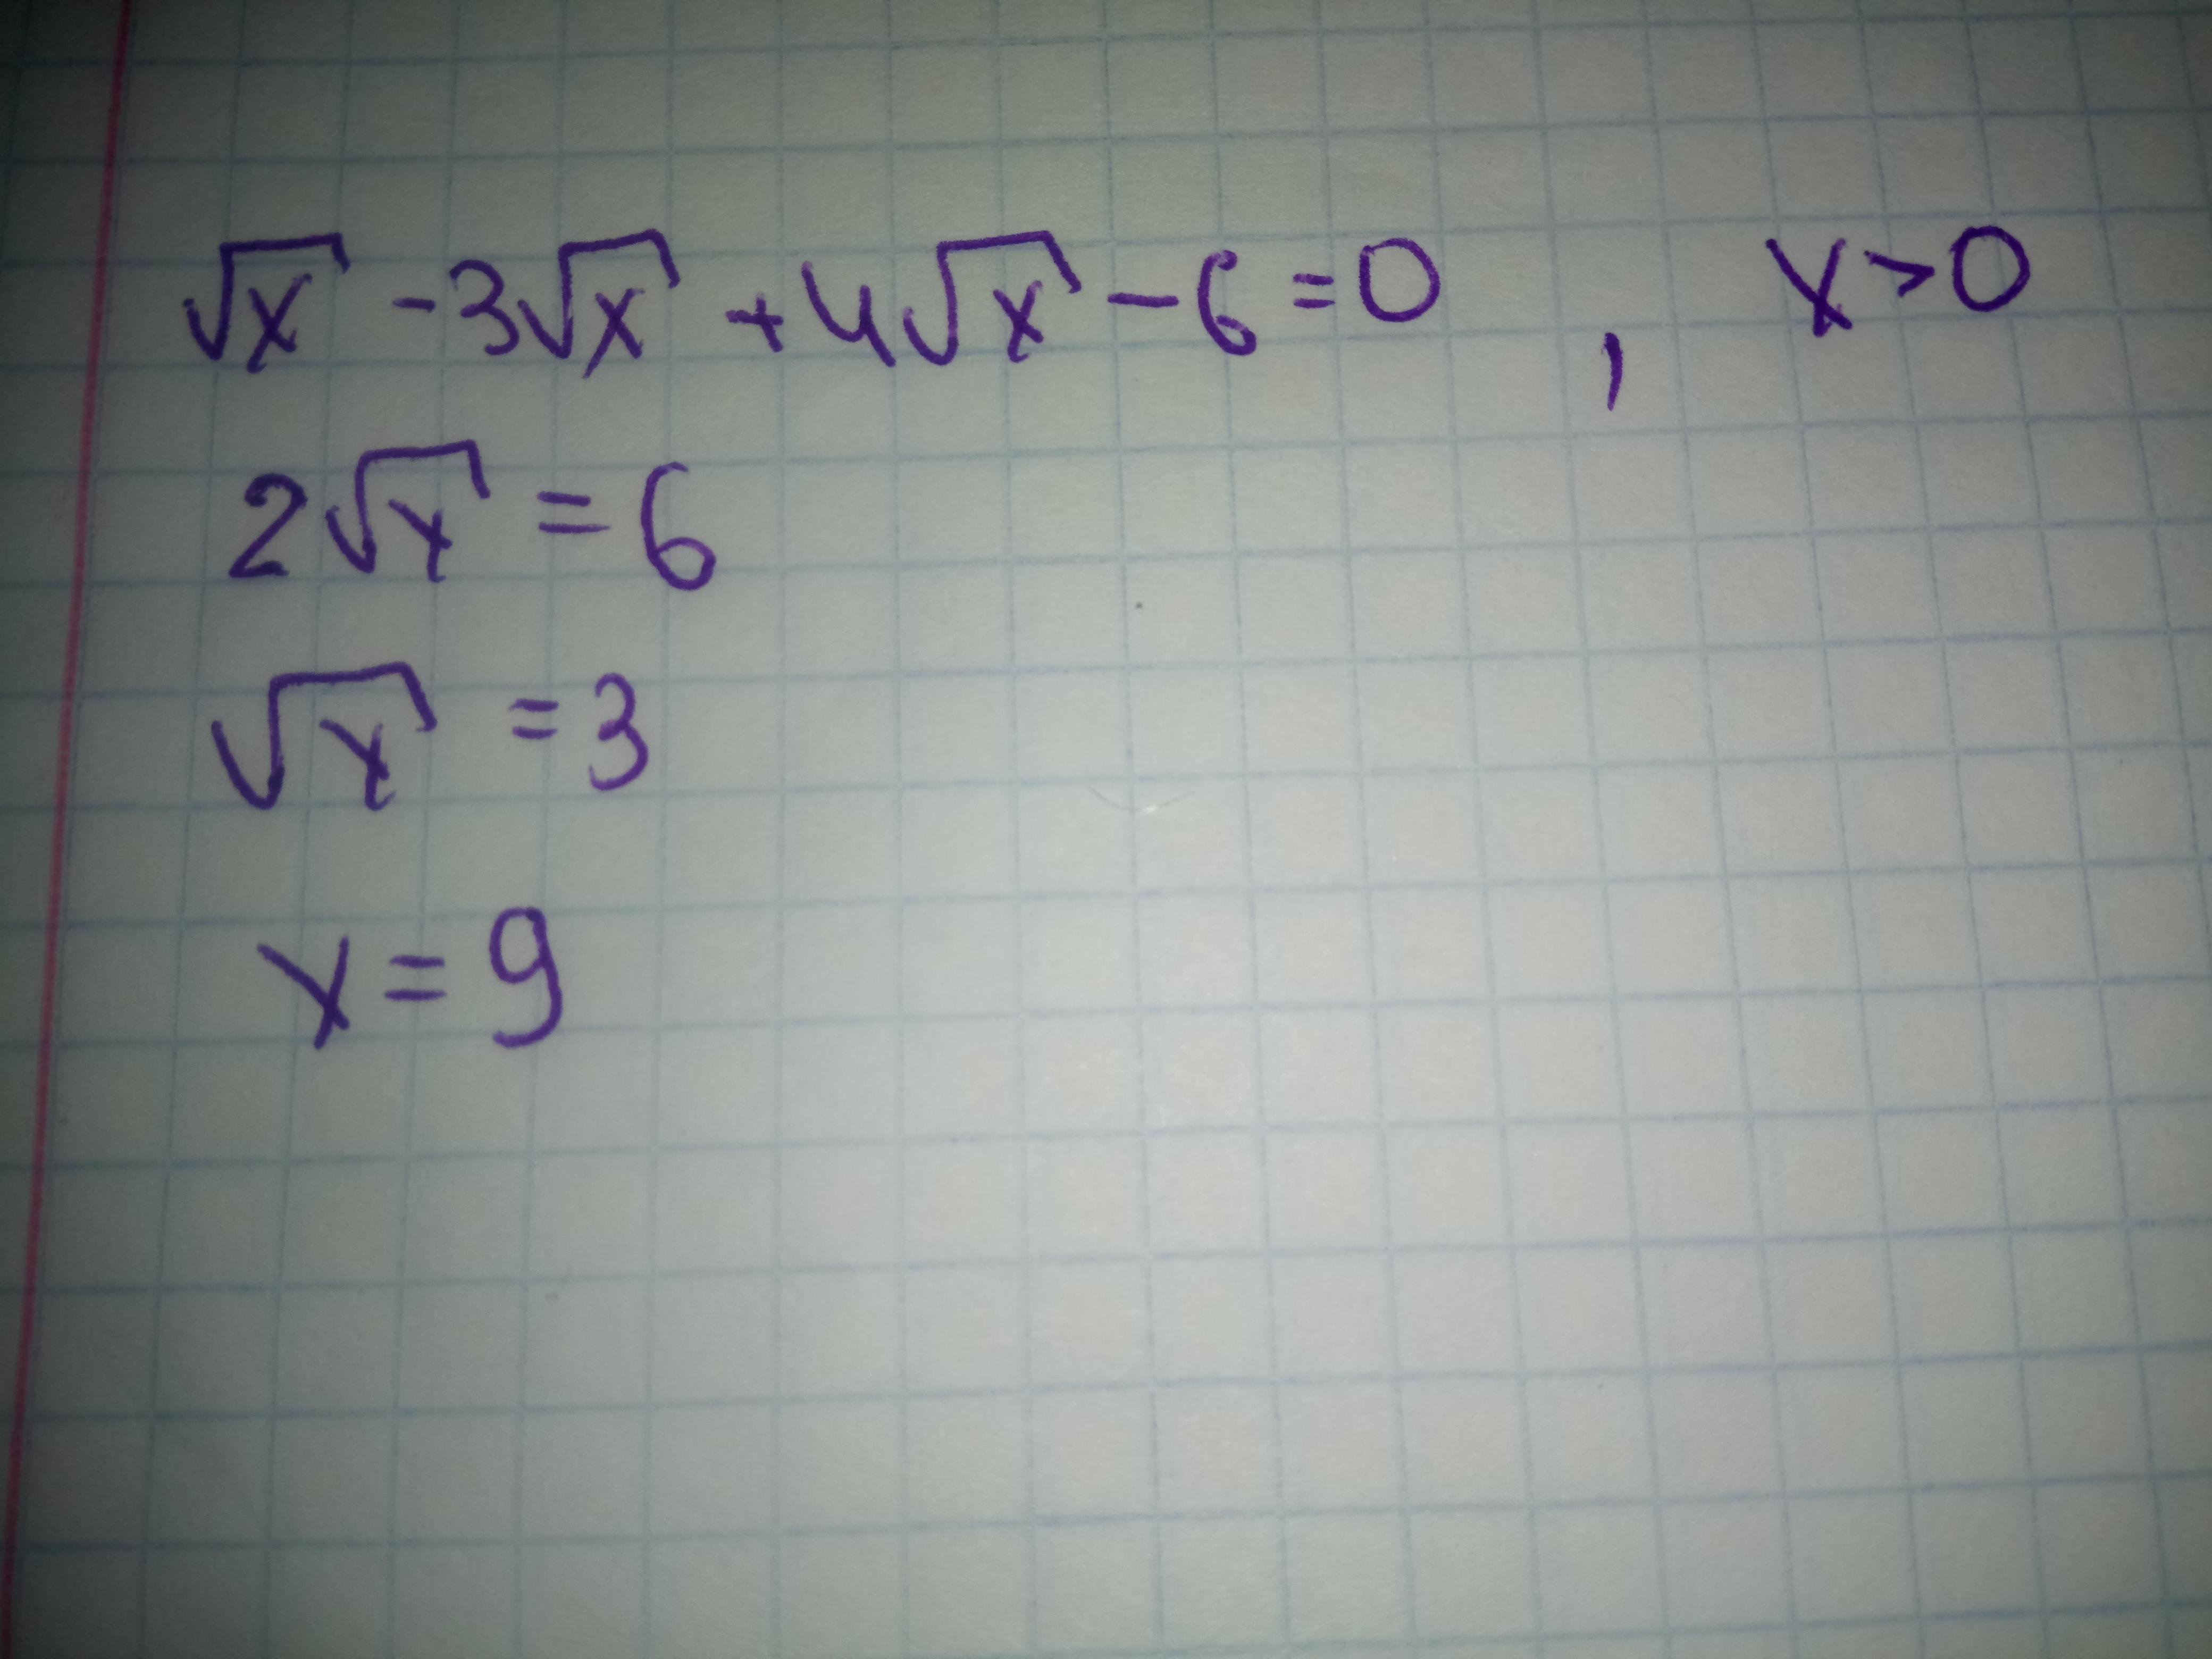 √x - 3√x + 4√x - 6 = 0 , x > 0
2√x = 6
√x = 3
x = 9